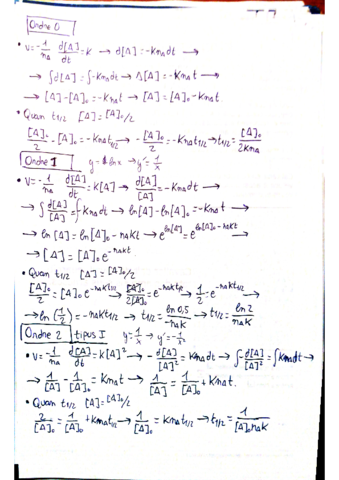 Ordre 0
• v=-1/nA d[A]/dt=K → d[A]=-KnAdt →
→ ∫d[A]=∫-KnAdt → Δ[A]=-KnAt →
→ [A]-[A]₀=-KnAt → [A]=[A]₀-KnAt
• Quan t1/2 [A]=[A]₀/2
[A]₀/2-[A]₀=-KnAt1/2 → -[A]₀/2=-KnAt1/2 → t1/2=[A]₀/2KnA
Ordre 1 y=lnx → y'=1/x
• v=-1/nA d[A]/dt=K[A] → d[A]/[A]=-KnAdt →
→ ∫d[A]/[A]=∫-KnAdt → ln[A]-ln[A]₀=-KnAt →
→ ln[A]=ln[A]₀-nAKt → e^ln[A]=e^ln[A]₀-nAKt →
→ [A]=[A]₀e^-nAKt
• Quan t1/2 [A]=[A]₀/2
[A]₀/2=[A]₀e^-nAKt1/2 → [A]₀/2[A]₀=e^-nAKt1/2 → 1/2=e^-nAKt1/2 →
→ ln(1/2)=-nAKt1/2 → t1/2=ln0,5/-nAK → t1/2=ln2/nAK
Ordre 2 tipus I y=1/x → y'=-1/x²
• v=-1/nA d[A]/dt=K[A]² → -d[A]/[A]²=KnAdt → ∫-d[A]/[A]²=∫KnAdt →
→ 1/[A]-1/[A]₀=KnAt → 1/[A]=1/[A]₀+KnAt.
• Quan t1/2 [A]=[A]₀/2
2/[A]₀=1/[A]₀+KnAt1/2 → 1/[A]₀=KnAt1/2 → t1/2=1/[A]₀nAK